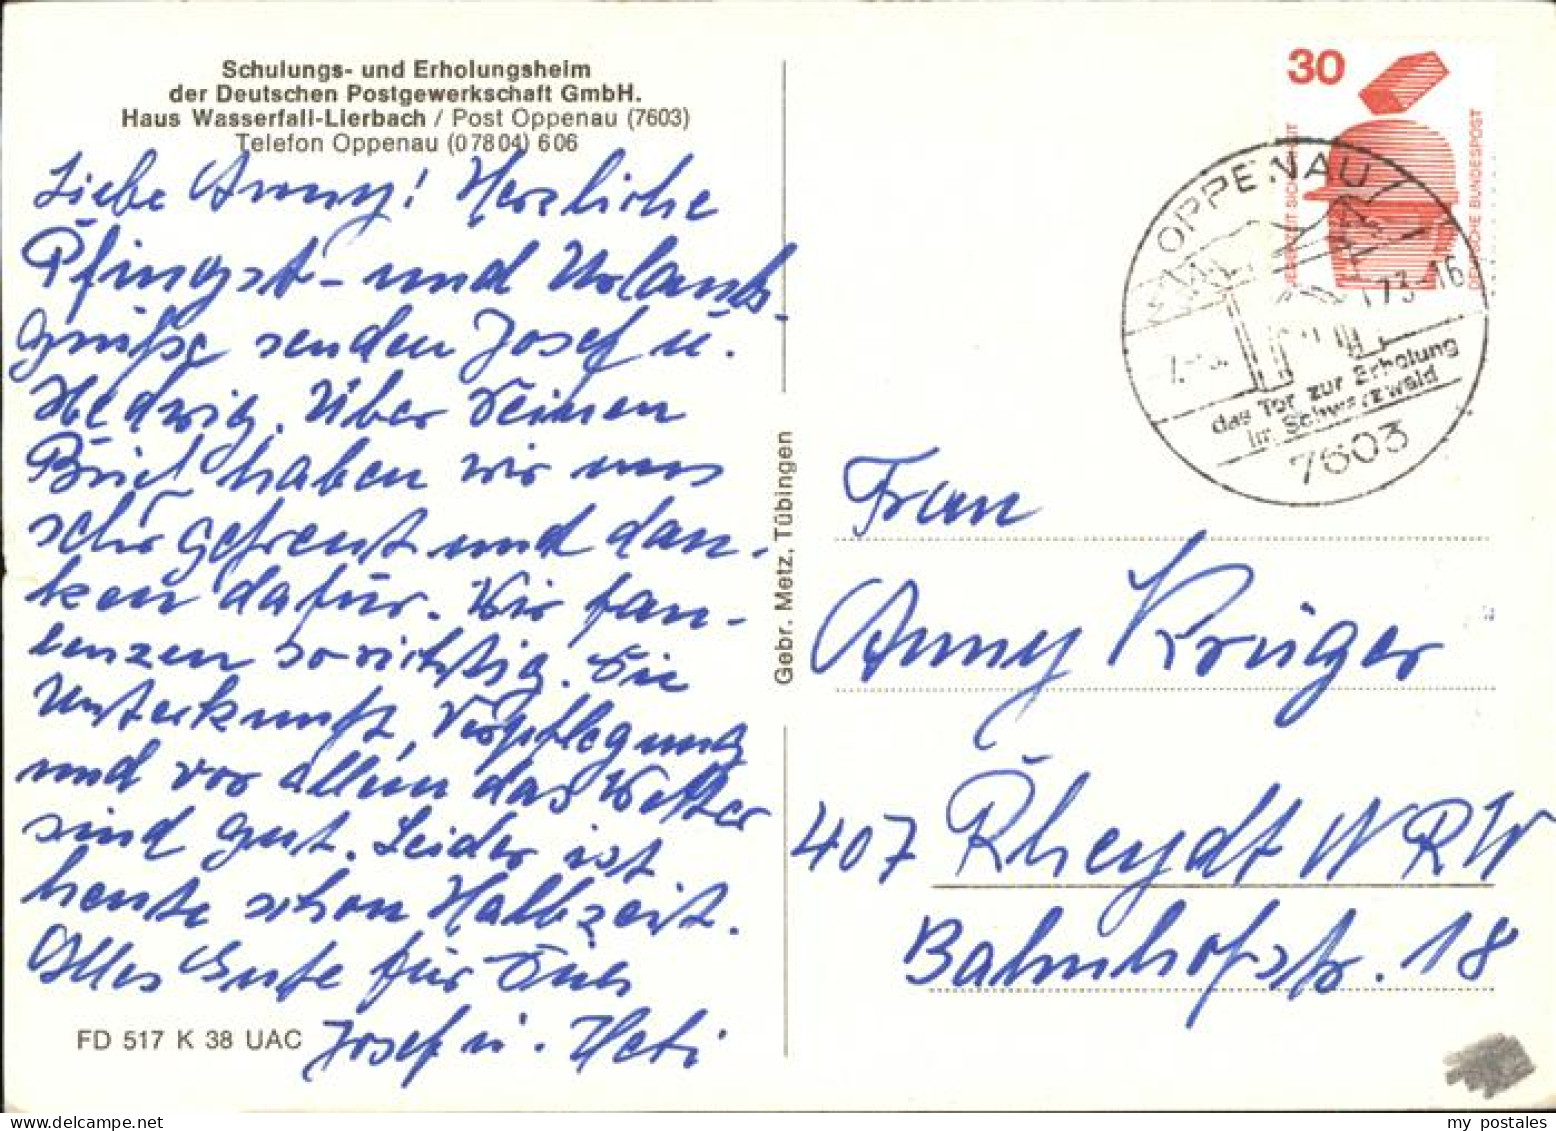 Schulungs- und Erholungsheim
der Deutschen Postgewerkschaft GmbH.
Haus Wasserfall-Lierbach / Post Oppenau (7603)
Telefon Oppenau (07804) 606
Liebe Anny! Herzliche
Pfingst- und Urlaubs-
grüße senden Josef u.
Hedwig. Über Deinen
Brief haben wir uns
sehr gefreut und dan-
ken dafür. Wir fau-
lenzen so richtig. Die
Unterkunft, Verpflegung
und vor allem das Wetter
sind gut. Leider ist
heute schon Halbzeit.
Alles Gute für Dies
Josef u. Heti
FD 517 K 38 UAC
Gebr. Metz, Tübingen
30
JEDERZEIT SICHERHEIT
DEUTSCHE BUNDESPOST
OPPENAU
73-16
das Tor zur Erholung
im Schwarzwald
7603
Frau
Anny Krüger
407 Rheydt NRW
Bahnhofstr. 18
my postales